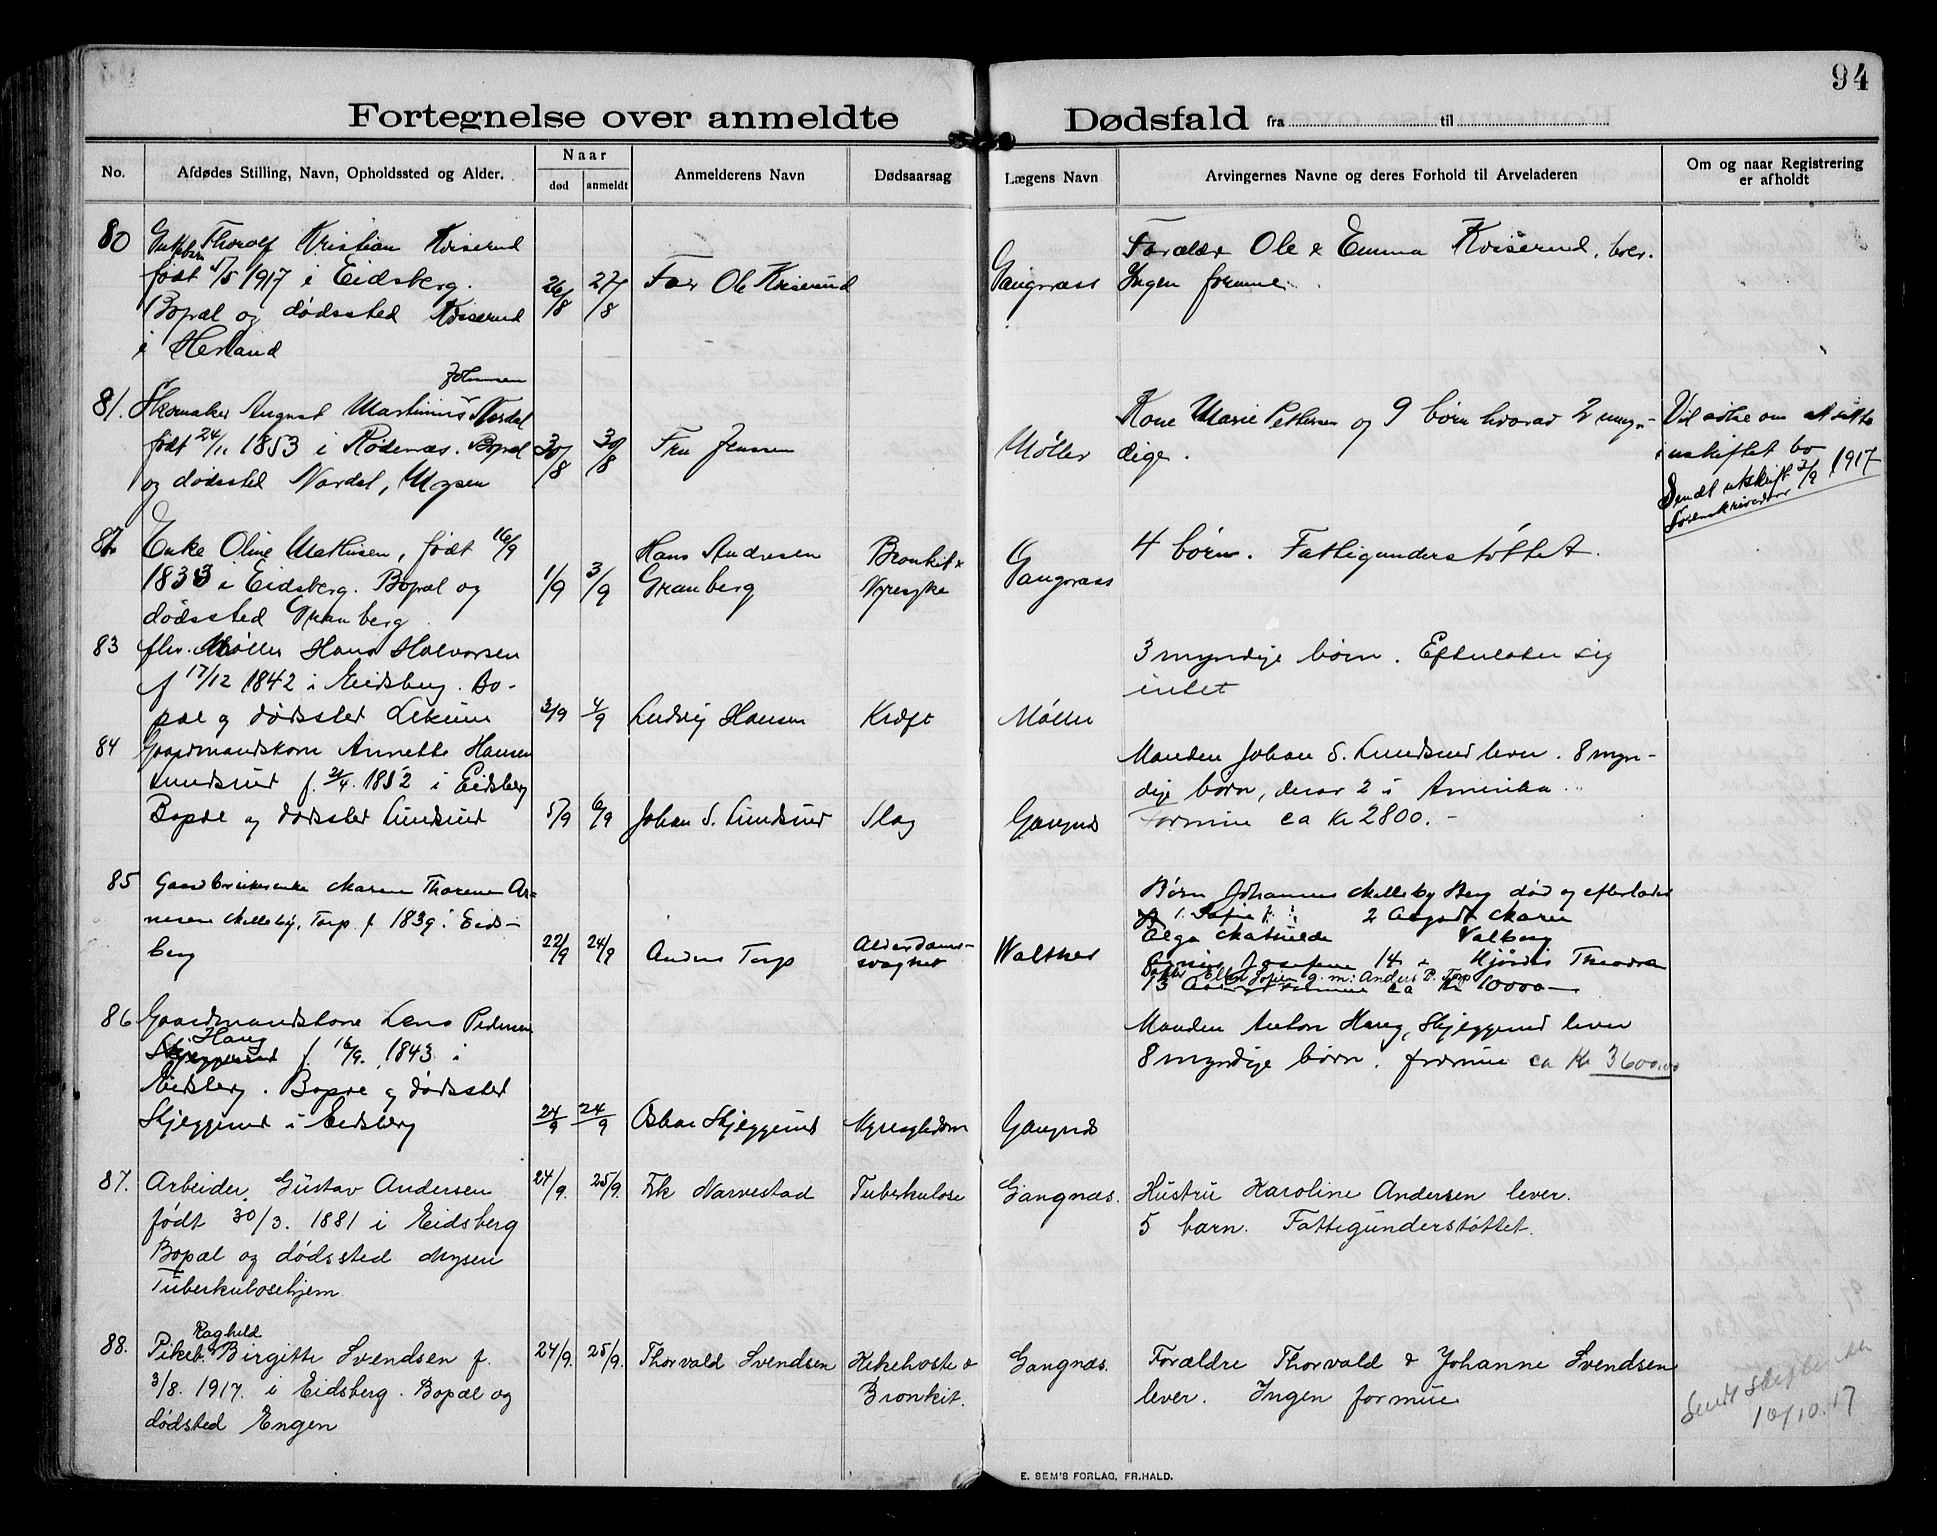 94
Fortegnelse over anmeldte Dødsfald fra til
No.
Afdødes Stilling, Navn, Opholdssted og Alder.
Naar
død
anmeldt
Anmelderens Navn
Dødsaarsag
Lægens Navn
Arvingernes Navne og deres Forhold til Arveladeren
Om og naar Registrering
er afholdt
80
Thorolf Kristian Kviserud
født 5/5 1917 i Eidsberg.
Bopæl og dødssted Kviserud
i Herland
26/8
27/8
Far Ole Kviserud
Gangnæss
Forældr Ole & Emma Kviserud, lever.
Ingen formue.
81.
Johnsen
Skomaker August Martinius Nordal
født 24/11 1853 i Rødenæs. Bopæl
og dødssted Nordal, Mysen
30/8
30/8
Fru Jensen
Møller
Kone Marie Pettersen og 9 børn hvorav 2 umyn-
dige.
Vil sitte
i uskiftet bo
Sendt utskrift 3/9 1917
Sorenskriveren
82
Enke Oline Mathisen, født 16/9
1833 i Eidsberg. Bopæl og
dødssted Granberg
1/9
3/9
Hans Andresen
Granberg
Bronkit &
Nyresyke
Gangnæss
4 børn. Fattigunderstøttet.
83
fhv. Møller Hans Halvorsen
f 17/12 1842 i Eidsberg. Bo-
pæl og dødssted Lekum
3/9
4/9
Ludvig Hansen
Kræft
Møller
3 myndige børn. Efterlater sig
intet
84
Gaardmandskone Annette Hansen
Lundsrud f. 21/4. 1852 i Eidsberg
Bopæl og dødssted Lundsrud
5/9
6/9
Johan S. Lundsrud
Slag
Gangnæs
Manden Johan S. Lundsrud lever. 8 myn-
dige børn, derav 2 i Amerika.
Formue ca Kr 2800.-
85
Gaardbrukerenke Maren Thorene Ar-
nesen Melleby, Torp f. 1839 i Eids-
berg
22/9
24/9
Anders Torp
Alderdoms-
svaghet
Walther
Børn Johannes Melleby Berg død og efterlader
1. Sofie 2 Maren
Olga Mathilde Valborg
Josefine 14 Hjørdis Theodora
Datter Ellen Sofie g. m: Anders P. Torp
formue ca Kr 10000-
86
Gaardmandskone Lena Pedersen
Haug
Skjeggerud f 16/9. 1843 i
Eidsberg. Bopæl og dødssted
Skjeggerud i Eidsberg
24/9
24/9
Oskar Skjeggerud
Nyresykdom
Gangnæs
Manden Anton Haug, Skjeggerud lever
8 myndige børn. formue ca Kr 3600.00
87.
Arbeider Gustav Andersen
født 30/3. 1881 i Eidsberg
Bopæl og dødssted Mysen
Tuberkulosehjem
24/9.
25/9.
Frk Narvestad
Tuberkulose
Gangnæs.
Hustru Karoline Andersen lever.
5 barn. Fattigunderstøttet.
88.
Raghild
Pikeb. Birgitte Svendsen f.
3/8. 1917. i Eidsberg. Bopæl og
dødsted Engen
24/9.
25/9.
Thorvald Svendsen
Kikehoste &
Bronkit.
Gangnæs.
Forældre Thorvald & Johanne Svendsen
lever. Ingen formue
Sendt
10/10. 17
E. SEM'S FORLAG, FR.HALD.